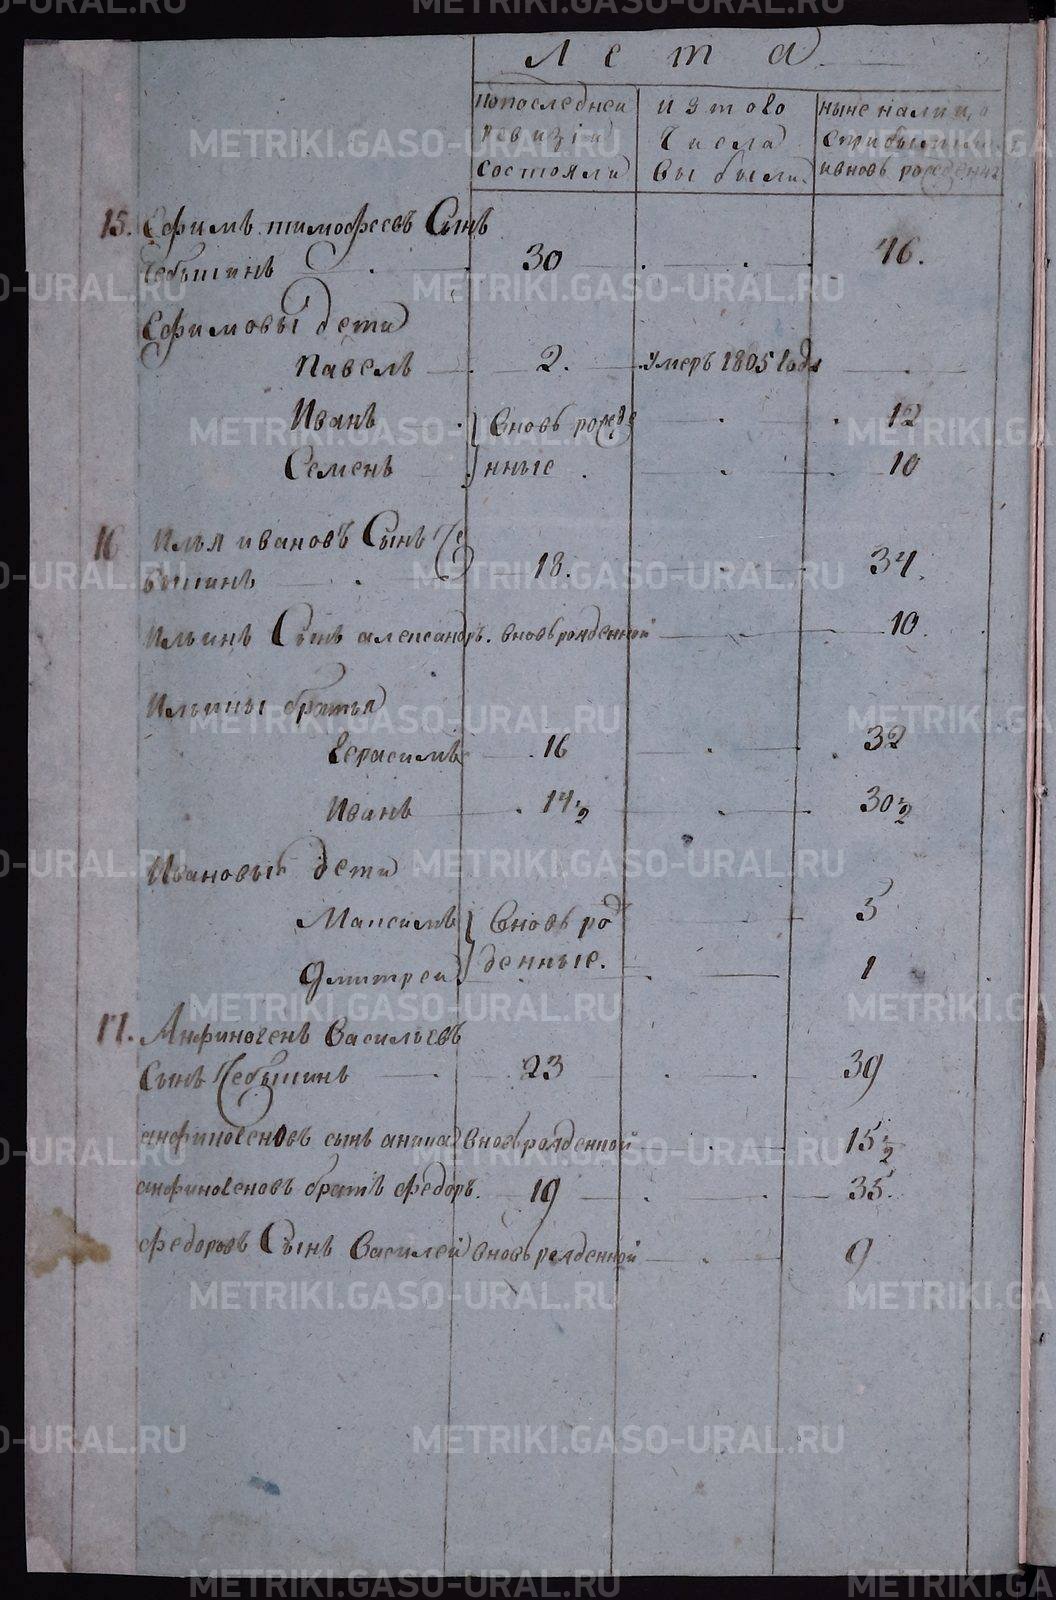 Лета
по последней ревизiи состояли
из того числа выбыли
ныне налицо с прибылыми и вновь рожденны
15. Ефимъ тимофеевъ Сынъ
Чебышинъ 30 46.
Ефимовы дети
Павелъ 2. умеръ 1805 года
Иванъ Вновь рожде 12
Семенъ нные 10
16 Илья ивановъ Сынъ Че
бышинъ 18. 34.
Ильинъ Сынъ александръ. вновьрожденной 10.
Ильины братья
Герасимъ 16 32
Иванъ 14 1/2 30 1/2
Ивановы дети
Максимъ Вновь рож 5
Дмитреи денные. 1
17. Анфиногенъ Васильевъ
Сынъ Чебышинъ 23 39
анфиногеновъ сынъ аника вновьрожденной 15 1/2
анфиногеновъ братъ Федоръ. 19 35.
Федоровъ Сынъ Василей вновьрожденной 9
METRIKI.GASO-URAL.RU